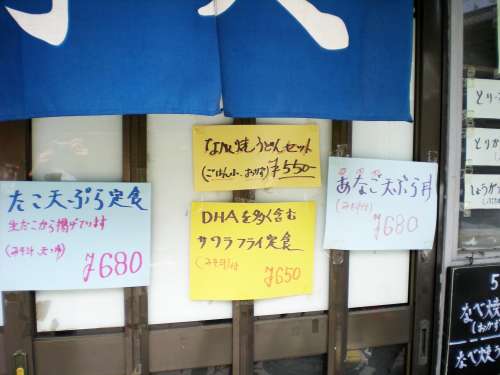 たこ天ぷら定食
生たこから揚げてます
(みそ汁 天つゆ)
¥680
なべ焼うどんセット
(ごはん小、おかず) ¥550-
DHAを多く含む
サワラフライ定食
(みそ汁)付
¥650
あなご天ぷら丼
(みそ汁付)
¥680
とり
とりか
しょうが
5
なべ焼
(おかず
なべ焼う